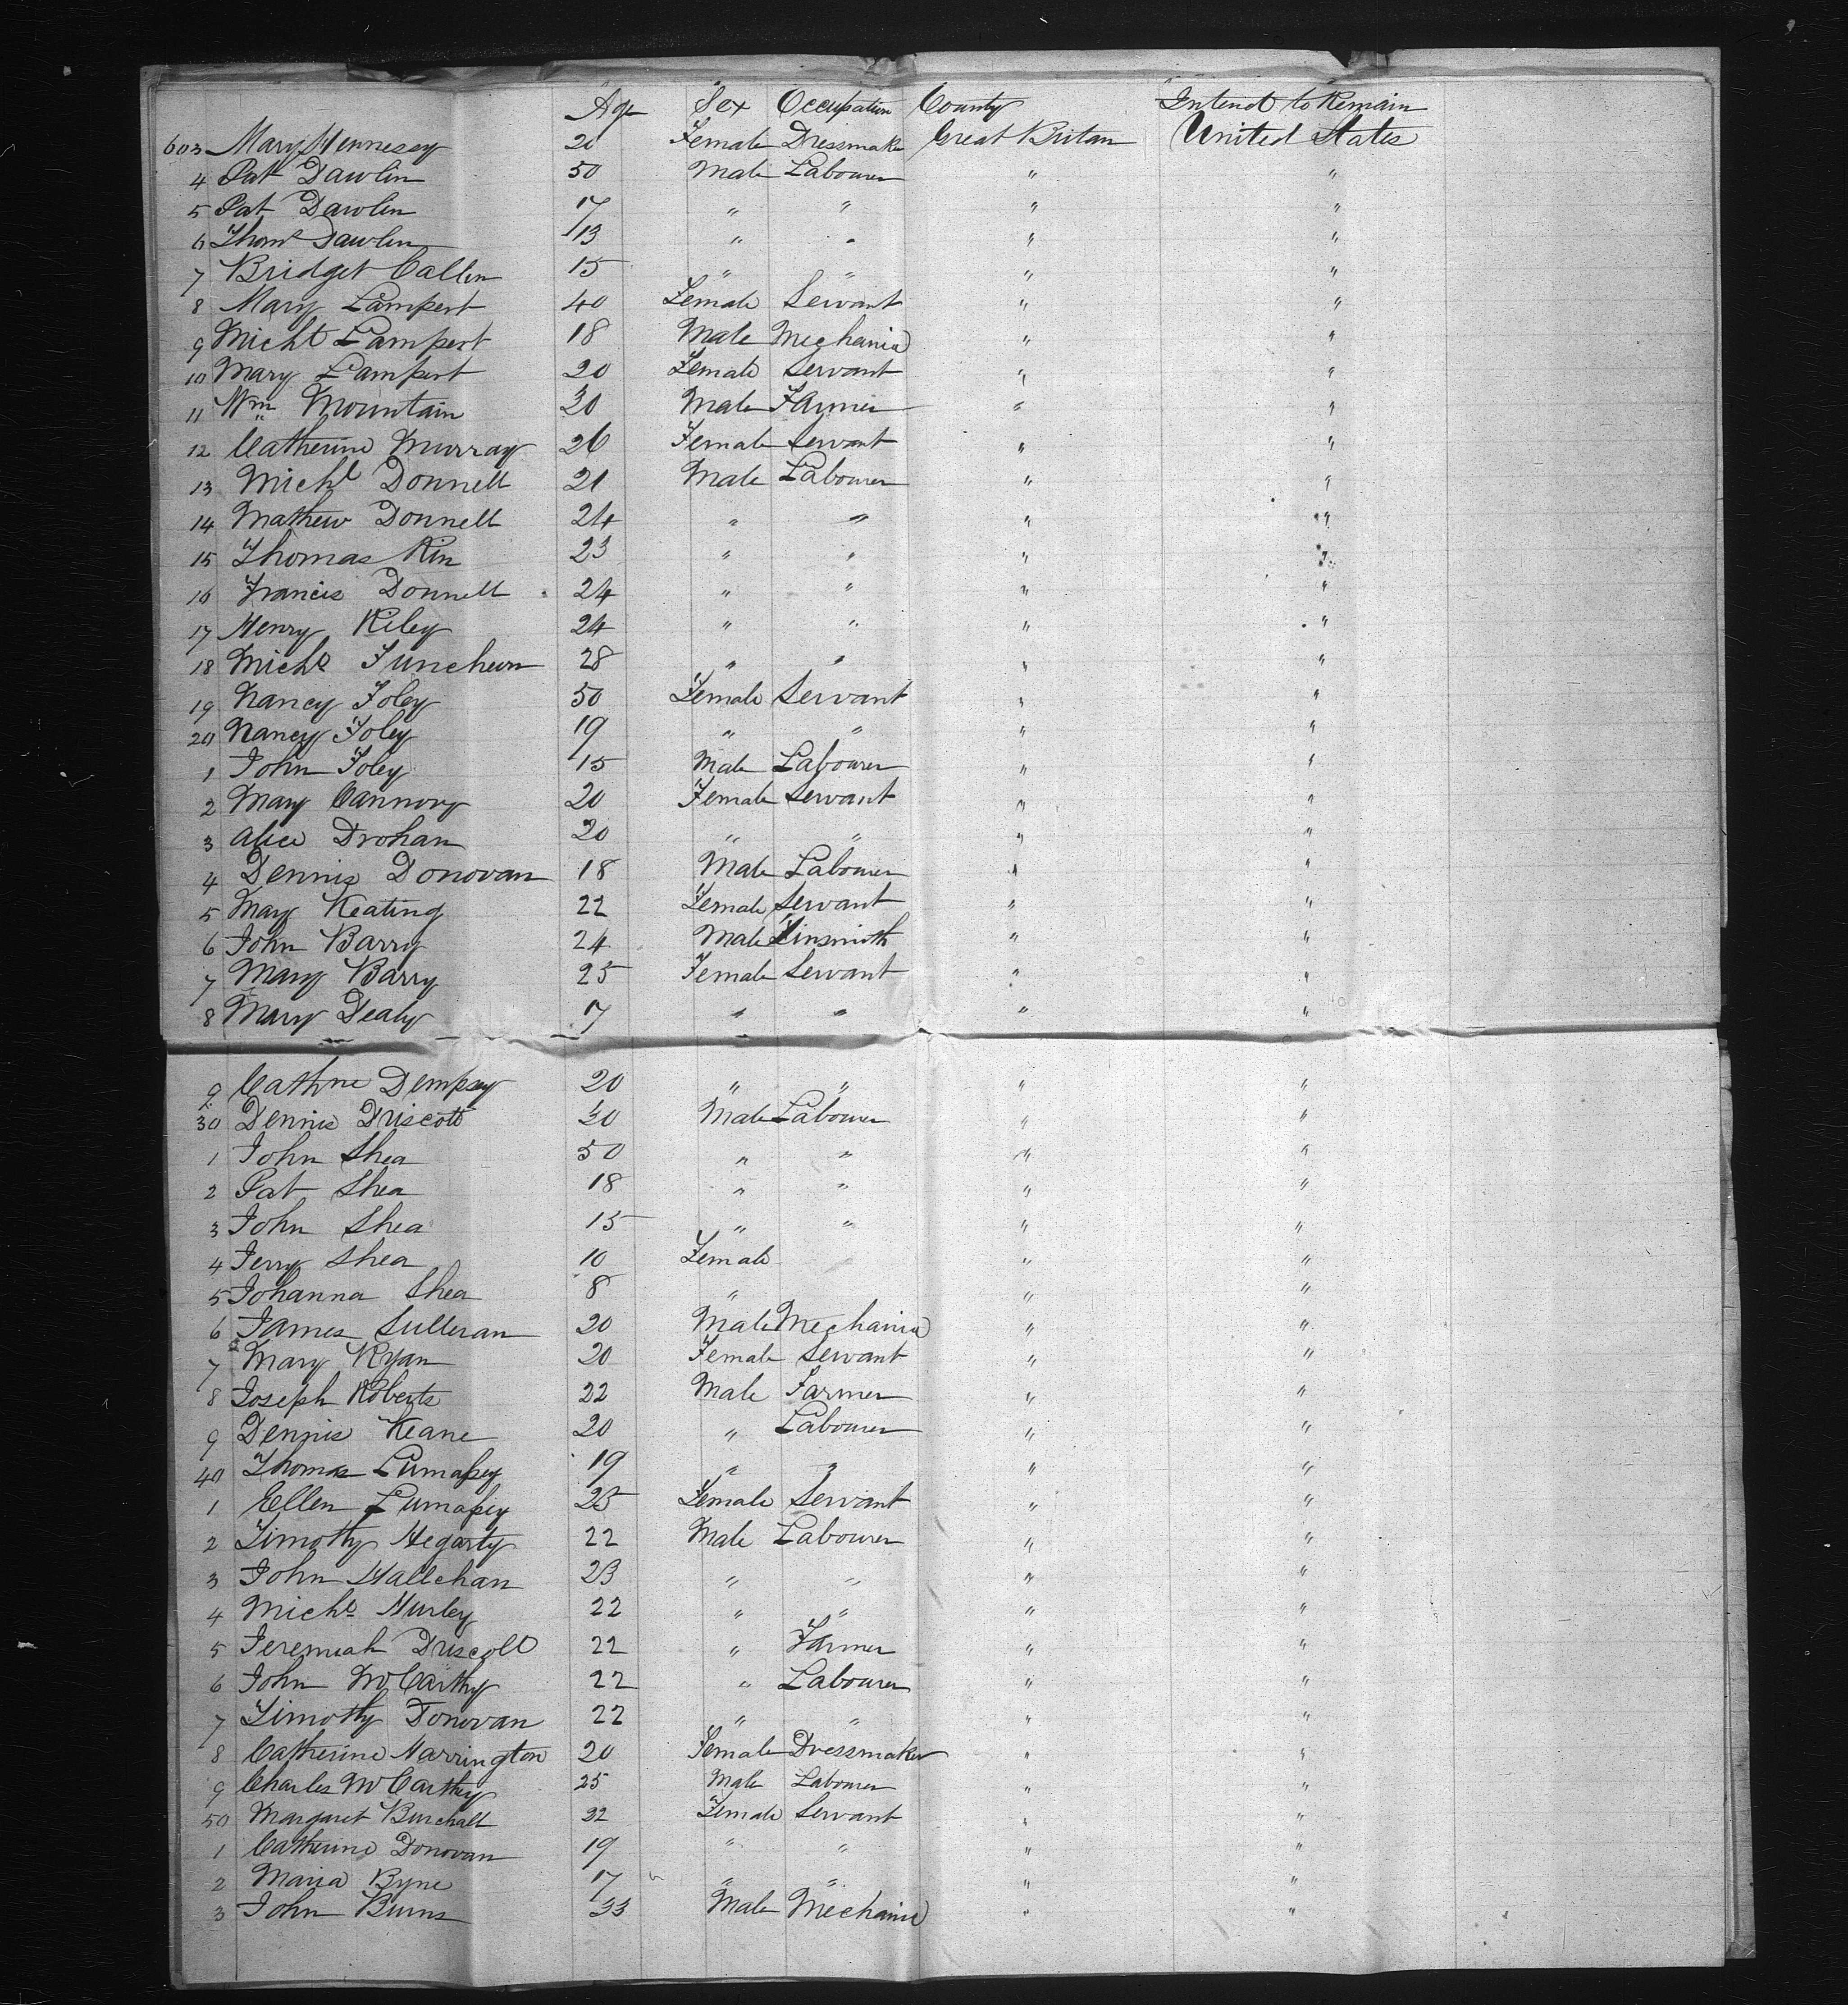 Age Sex Occupation County Intend to Remain
603 Mary Hennesey 20 Female Dressmaker Great Britan United States
4 Pat Dawlin 50 Male Labourer " "
5 Pat Dawlin 17 " " " "
6 Thoms Dawlin 13 " " " "
7 Bridget Callen 15 " " " "
8 Mary Lampert 40 Female Servant " "
9 Michl Lampert 18 Male Mechanic " "
10 Mary Lampert 20 Female Servant " "
11 Wm Mountain 30 Male Farmer " "
12 Catherine Murray 26 Female Servant " "
13 Michl Donnell 21 Male Labourer " "
14 Mathew Donnell 24 " " " "
15 Thomas Kin 23 " " " "
16 Francis Donnell 24 " " " "
17 Henry Riley 24 " " " "
18 Michl Funcheon 28 " " " "
19 Nancy Foley 50 Female Servant " "
20 Nancy Foley 19 " " " "
1 John Foley 15 Male Labourer " "
2 Mary Cannory 20 Female Servant " "
3 Alice Drohan 20 " " " "
4 Dennis Donovan 18 Male Labourer " "
5 Mary Keating 22 Female Servant " "
6 John Barry 24 Male Tinsmith " "
7 Mary Barry 25 Female Servant " "
8 Mary Dealy 7 " " " "
9 Cathne Dempsey 20 " " " "
30 Dennis Driscoll 30 Male Labourer " "
1 John Shea 50 " " " "
2 Pat Shea 18 " " " "
3 John Shea 15 " " " "
4 Jerry Shea 10 Female " "
5 Johanna Shea 8 " " "
6 James Sullevan 20 Male Mechanic " "
7 Mary Ryan 20 Female Servant " "
8 Joseph Roberts 22 Male Farmer " "
9 Dennis Keane 20 " Labourer " "
40 Thomas Lumasey 19 " " " "
1 Ellen Lumasey 25 Female Servant " "
2 Timothy Hegarty 22 Male Labourer " "
3 John Hallehan 23 " " " "
4 Michl Hurley 22 " " " "
5 Jeremiah Driscoll 22 " Farmer " "
6 John McCarthy 22 " Labourer " "
7 Timothy Donovan 22 " " " "
8 Catherine Harrington 20 Female Dressmaker " "
9 Charles McCarthy 25 Male Labourer " "
50 Margaret Burchall 22 Female Servant " "
1 Catherine Donovan 19 " " " "
2 Maria Byne 17 " " " "
3 John Burns 33 Male Mechanic " "